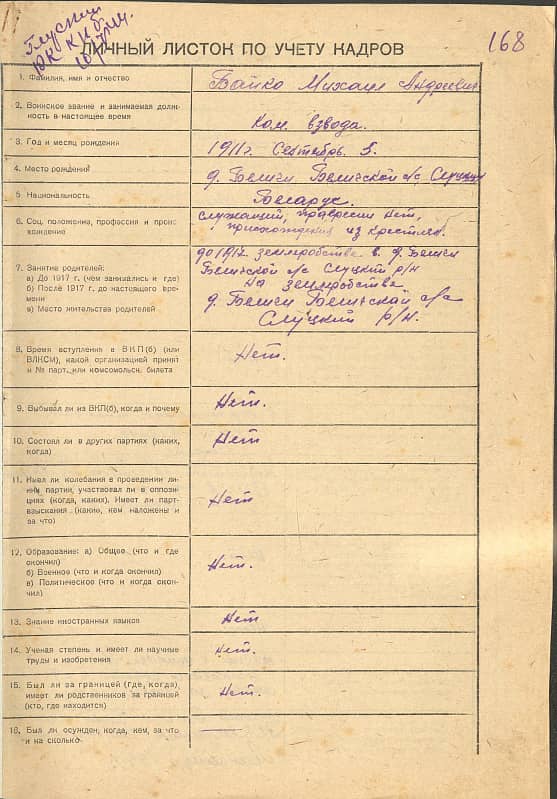 Глуский
РК КП(б)Б
ЛИЧНЫЙ ЛИСТОК ПО УЧЕТУ КАДРОВ
168
1. Фамилия, имя и отчество
Байко Михаил Андреевич
2. Воинское звание и занимаемая долж-
ность в настоящее время
Ком. взвода.
3. Год и месяц рождения
1911г. Сентябрь 5.
4. Место рождения
д. Беличи Беличской с/с Слуцкий
5 Национальность
Беларус.
6. Соц. положение, профессия и проис-
хождение
служащий, професии нет,
происхождения из крестьян.
7. Занятие родителей:
а) До 1917 г. (чем занимались и где)
б) После 1917 г. до настоящего вре-
мени
в) Место жительства родителей
до 1917 землробства в д. Беличи
Беличской с/с Слуцкий р/н
на землробства
д. Беличи Беличской с/с
Слуцкий р/н.
8. Время вступления в ВКП(б) (или
ВЛКСМ), какой организацией принят
и № парт. или комсомольск. билета
Нет.
9. Выбывал ли из ВКП(б), когда и почему
Нет.
10. Состоял ли в других партиях (каких,
когда)
Нет
11. Имел ли колебания в проведении ли-
нии партии, участвовал ли в оппози-
циях (когда, каких). Имеет ли парт-
взыскания (какие, кем наложены и
за что)
Нет
12. Образование: а) Общее (что и где
окончил)
б) Военное (что и когда окончил)
в) Политическое (что и когда окон-
чил)
Нет.
13. Знание иностранных языков
Нет
14. Ученая степень и имеет ли научные
труды и изобретения
Нет.
15. Был ли за границей (где, когда),
имеет ли родственников за границей
(кто, где находится)
Нет.
16. Был ли осужден, когда, кем, за что
и на сколько
—